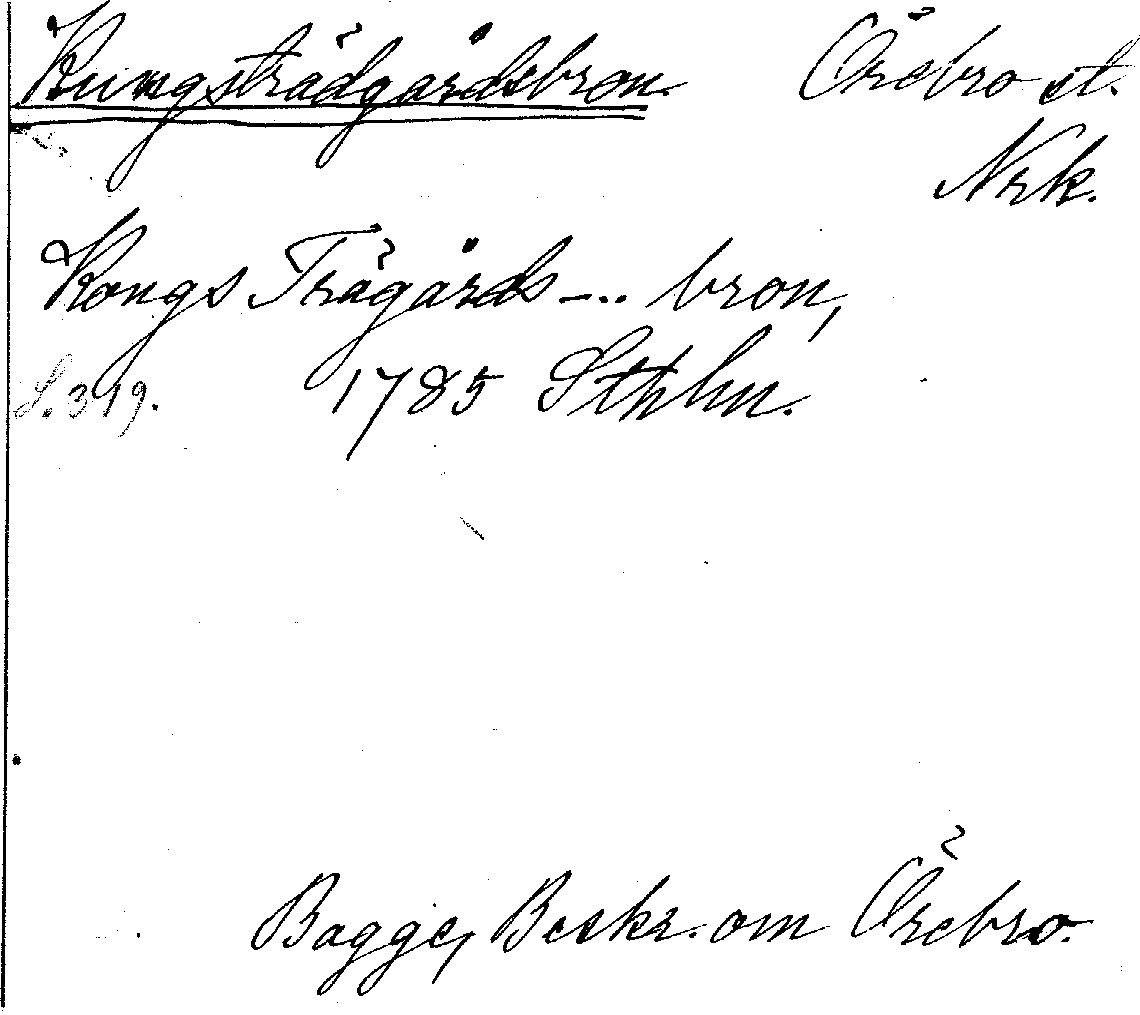 Kungsträdgårdsbron. Örebro st.
Nrk.
Kongs Trägårds -.. bron,
S. 319. 1785 Sthlm.
Bagge, Beskr. om Örebro.